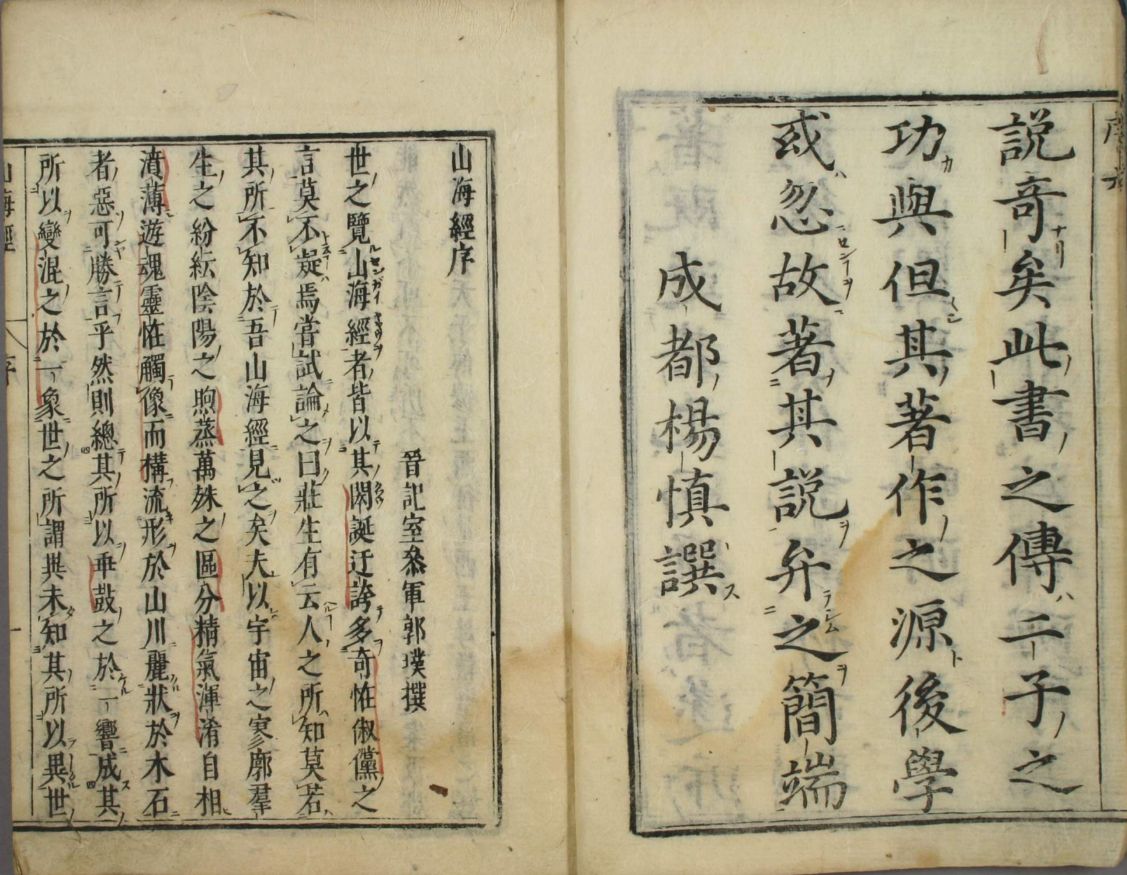 説奇矣此書之傳二子之
功與但其著作之源後學
或忽故著其説弁之簡端
成都楊慎譔
山海經序
晉記室叅軍郭璞撰
世之覽山海經者皆以其閎誕迂誇多奇怪俶儻之
言莫不疑焉嘗試論之曰莊生有云人之所知莫若
其所不知於吾山海經見之矣夫以宇宙之寥廓羣
生之紛紜陰陽之煦蒸萬殊之區分精氣渾淆自相
濆薄遊魂靈怪觸像而構流形於山川麗狀於木石
者惡可勝言乎然則總其所以乖鼓之於一響成其
所以變混之於一象世之所謂異未知其所以異世
山海經
序